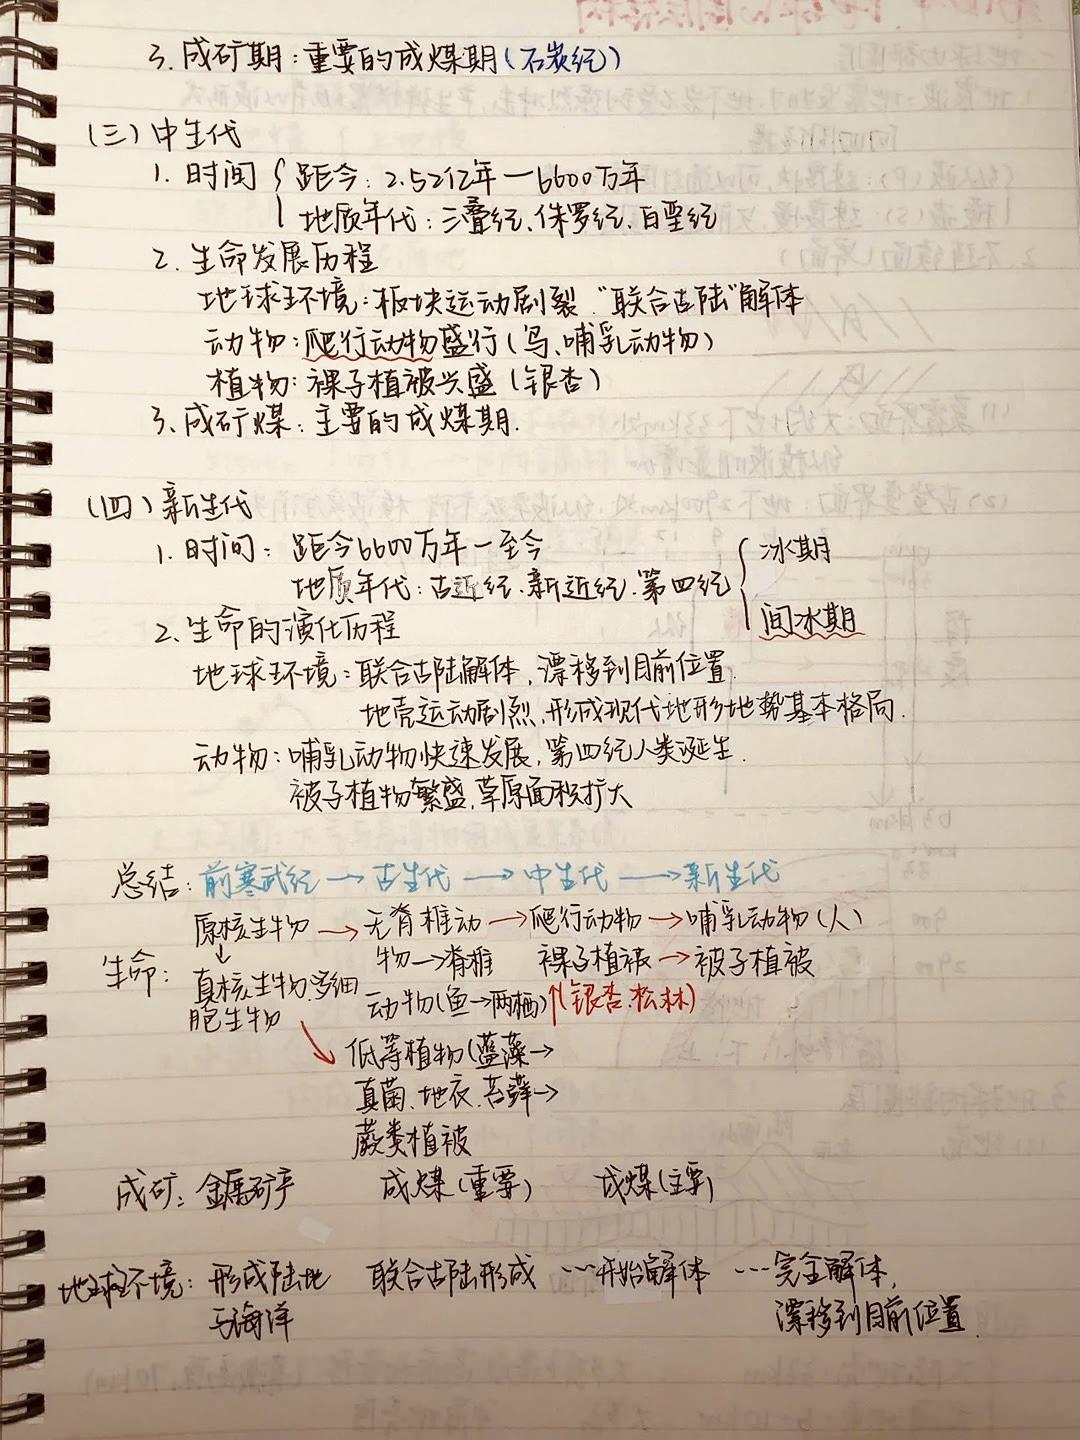 3. 成矿期：重要的成煤期(石炭纪)
(三)中生代
1. 时间 { 距今：2.52亿年—6600万年
地质年代：三叠纪、侏罗纪、白垩纪
2. 生命发展历程
地球环境：板块运动剧裂 "联合古陆"解体
动物：爬行动物盛行(鸟、哺乳动物)
植物：裸子植被兴盛(银杏)
3. 成矿煤：主要的成煤期.
(四)新生代
1. 时间：距今6600万年—至今
地质年代：古近纪.新近纪.第四纪 { 冰期
间冰期
2. 生命的演化历程
地球环境：联合古陆解体,漂移到目前位置.
地壳运动剧烈,形成现代地形地势基本格局.
动物：哺乳动物快速发展,第四纪人类诞生.
被子植物繁盛,草原面积扩大
总结：前寒武纪→古生代→中生代→新生代
原核生物→无脊椎动→爬行动物→哺乳动物(人)
生命：↓ 物→脊椎 裸子植被→被子植被
真核生物.多细 动物(鱼→两栖)↑(银杏.松林)
胞生物
↘ 低等植物(蓝藻→
真菌.地衣.苔藓→
蕨类植被
成矿：金属矿产 成煤(重要) 成煤(主要)
地球环境：形成陆地 联合古陆形成 …开始解体 …完全解体,
与海洋 漂移到目前位置.